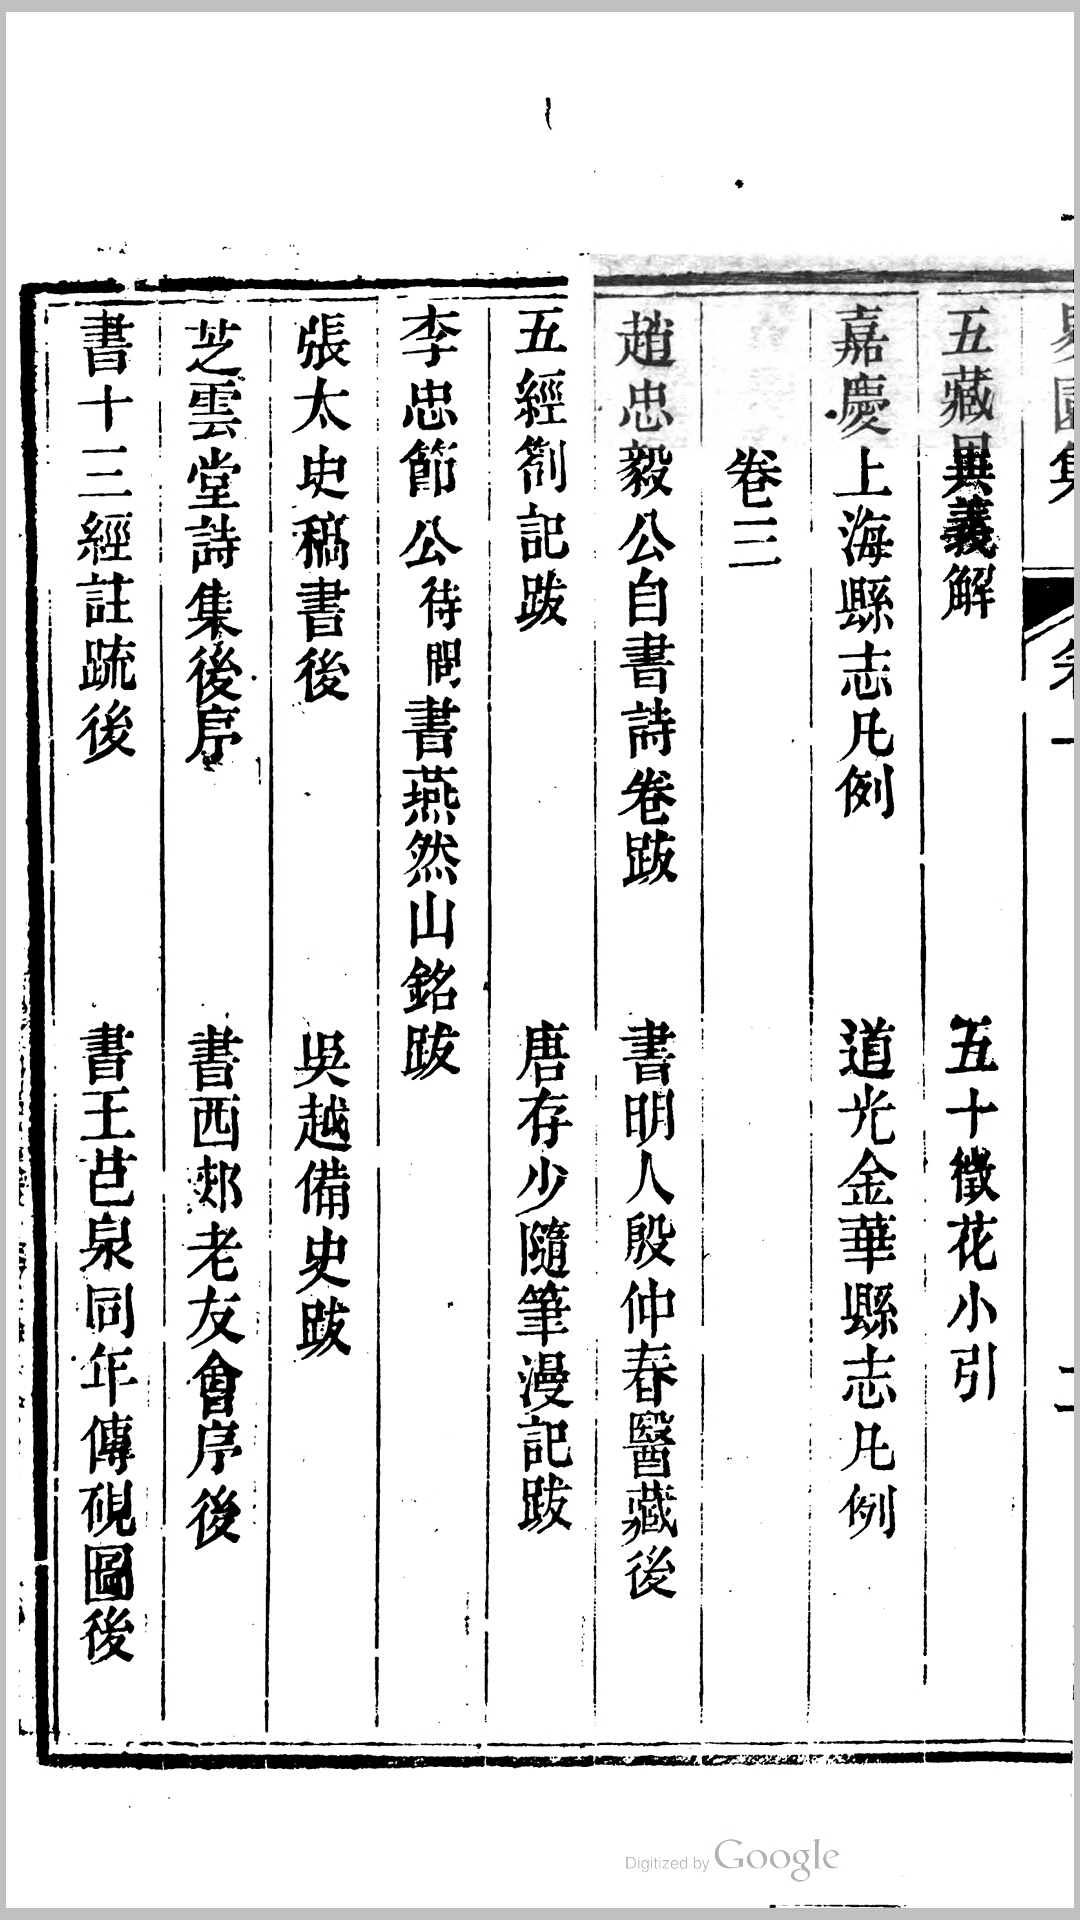 五藏異義解　五十徵花小引
嘉慶上海縣志凡例　道光金華縣志凡例
卷三
趙忠毅公自書詩卷跋　書明人殷仲春醫藏後
五經劄記跋　唐存少隨筆漫記跋
李忠節公待問書燕然山銘跋
張太史稿書後　吳越備史跋
芝雲堂詩集後序　書西郟老友會序後
書十三經註疏後　書王芑泉同年傳硯圖後
Digitized by Google